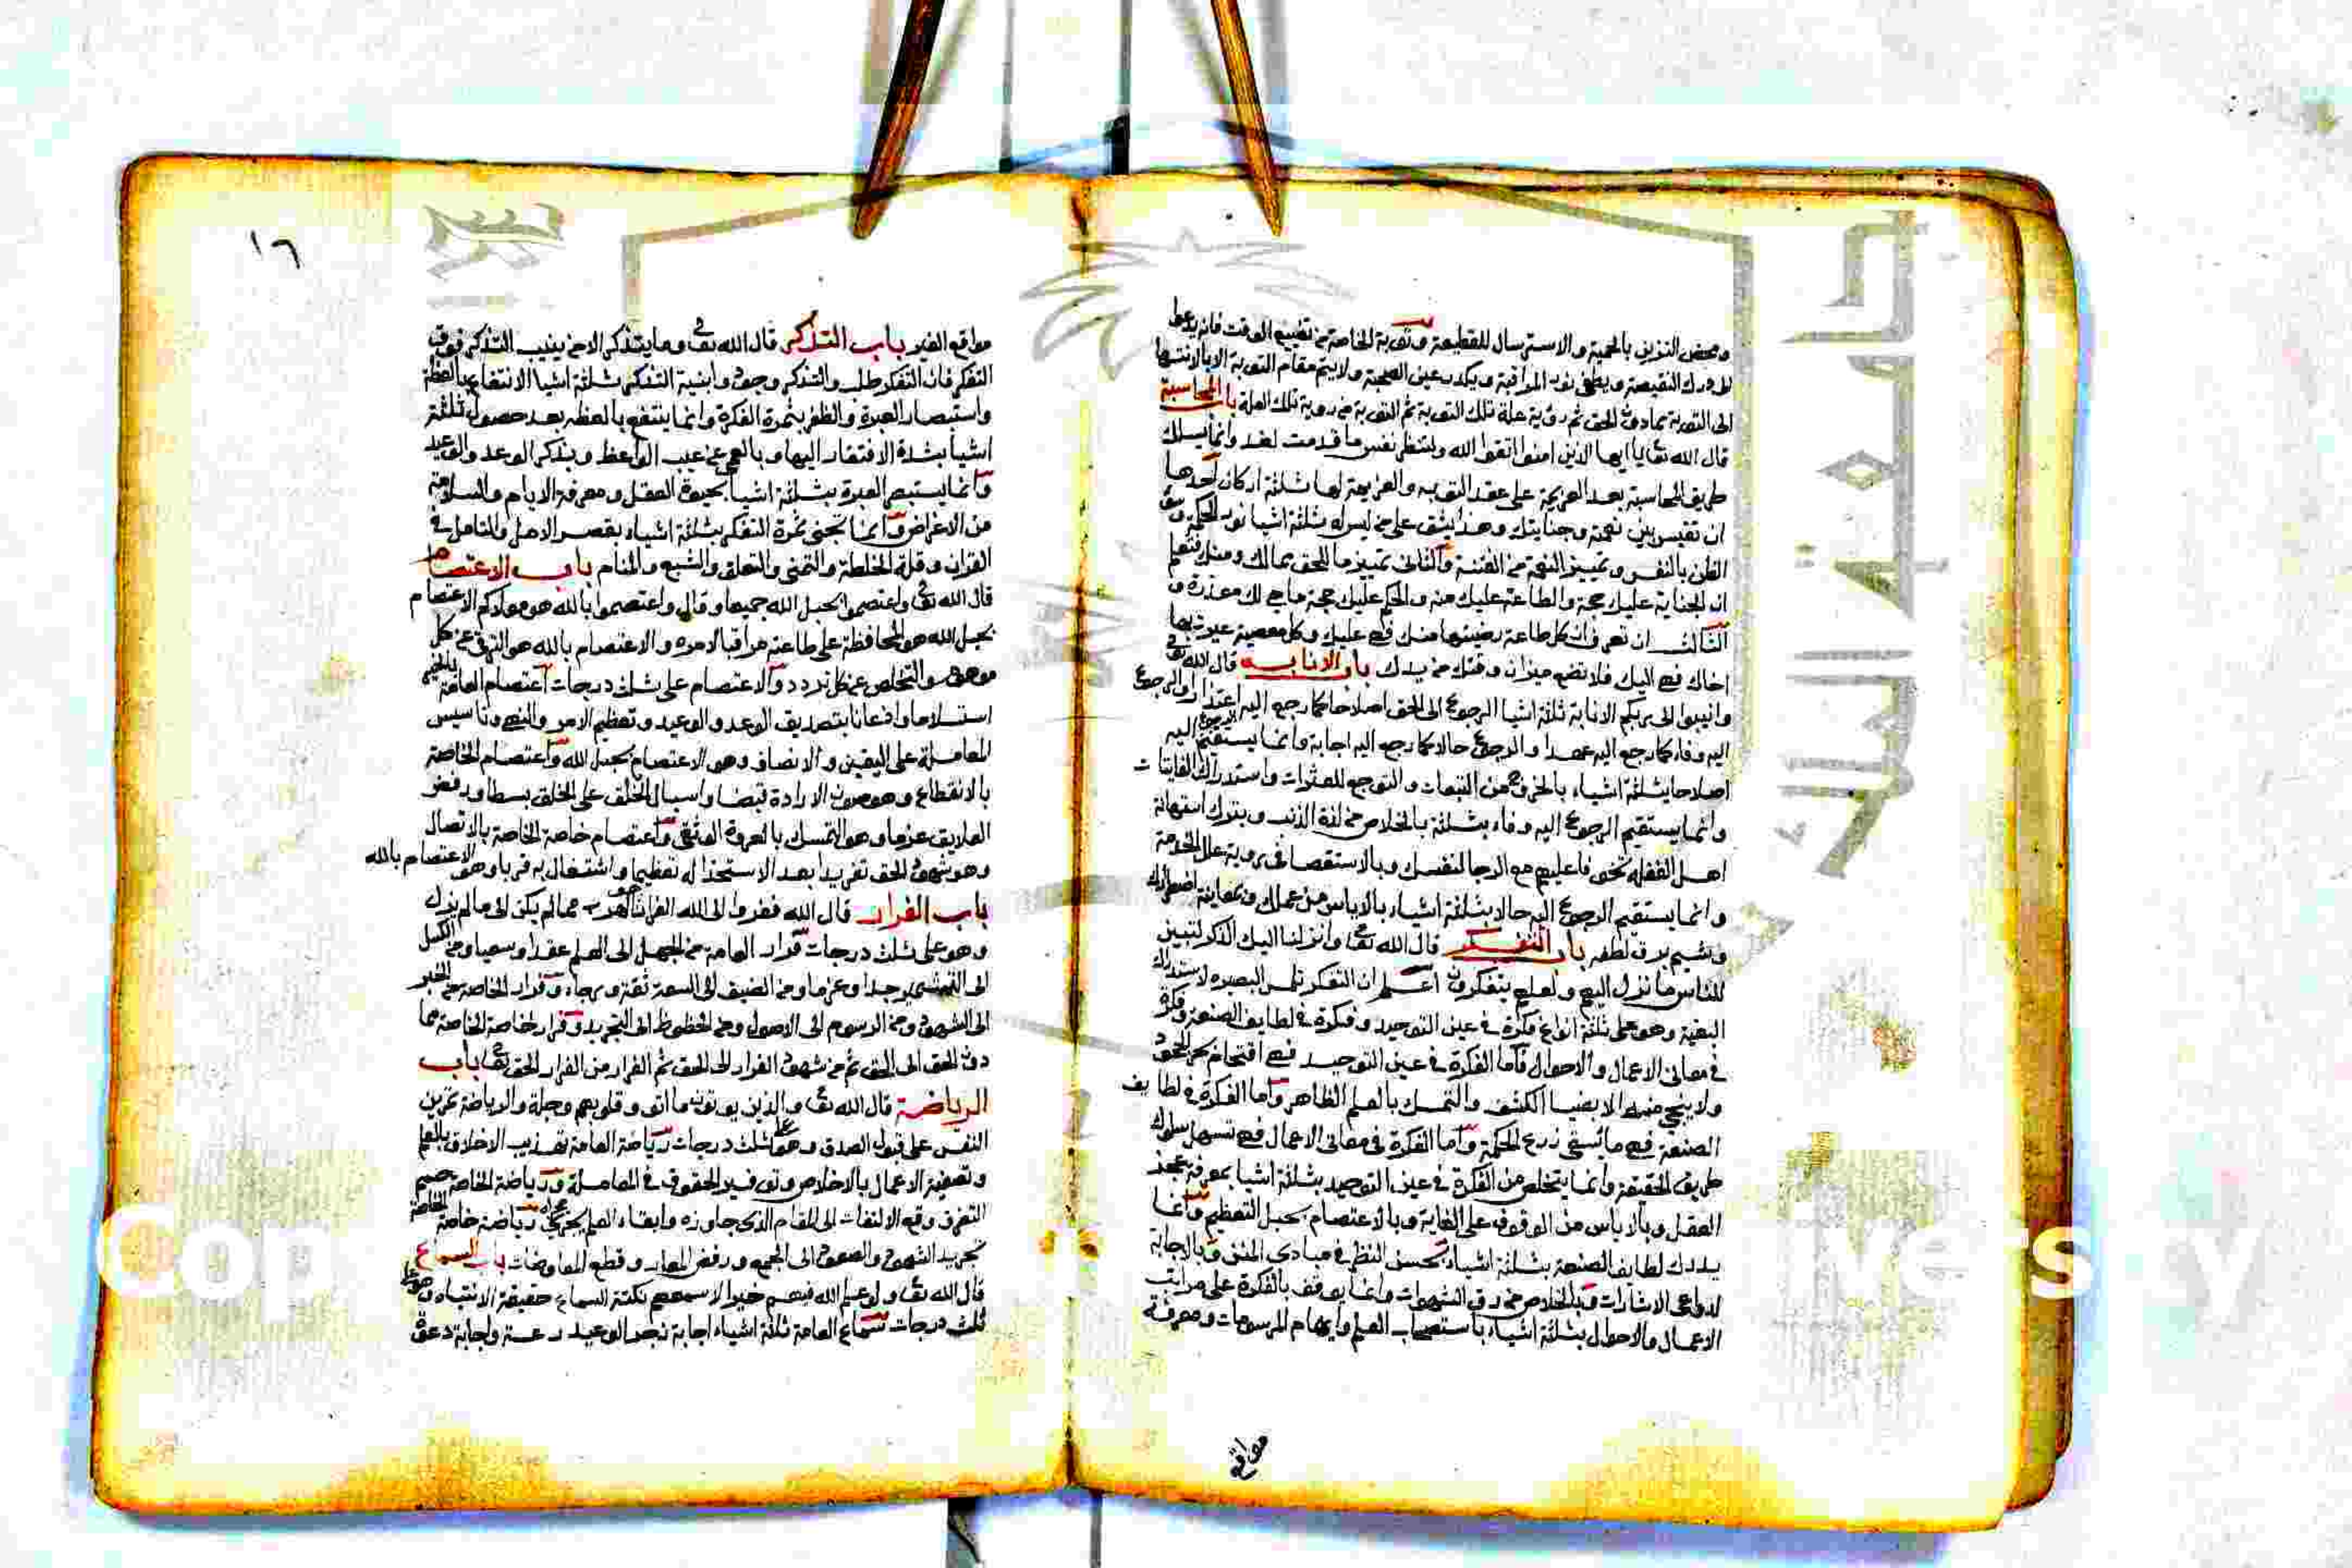 ومحض التزين بالحمية والاسترسال للقطيعة وتوبة الخاصة من تضييع الوقت فانه يدعوا
الى درك النقيصة ويطفي نور المراقبة ويكدر عين الصحبة ولا يتم مقام التوبة الا بالانتها
الى التوبة مما دون الحق ثم رؤية علة تلك التوبة ثم التوبة من روية تلك العلة باب المحاسبة
قال الله تعا يا ايها الذين امنوا اتقوا الله ولتنظر نفس ما قدمت لغد وانما يسلك
طريق المحاسبة بعد العزيمة على عقد التوبه والعزيمة لها ثلثة اركان احدها
ان تقيس بين نعمة وجنايتك وهذا يشق على من ليس له ثلثة اشيا نور الحكمة وسؤ
الظن بالنفس وتمييز النعمة من الفتنة والثانى تمييز ما للحق مما لك ومنك فتعلم
ان الجناية عليك حجة والطاعة عليك منه والحكم عليك حجة ما هي لك معذرة و
الثالث ان تعرف ان كل طاعة رضيتها منك فهي عليك وكل معصية عيرت بها
اخاك فهي اليك فلا تضع ميزان وقتك من يدك باب الانابه قال الله تعا
وانيبوا الى ربكم الانابة ثلثة اشيا الرجوع الى الحق اصلاحا كما رجع اليه اعتذارا والرجوع
اليه وفاء كما رجع اليه عهدا والرجوع حالا كما رجع اليه اجابة وانما يستقيم الرجوع اليه
اصلاحا بثلثة اشياء بالخروج من التبعات والتوجع للعثرات واستدراك الفايتات
وانما يستقيم الرجوع اليه وفاء بثلثة بالخلاص من لذة الذنب وبترك استهانة
اهل الغفلة تخوفا عليهم مع الرجا لنفسك وبالاستقصا في روية علل الخدمة
وانما يستقيم الرجوع اليه حالا بثلثة اشياء بالاياس من عملك ومعاينة اضطرارك
وتشيم برق لطفه باب التفكر قال الله تعا وانزلنا اليك الذكر لتبين
للناس ما نزل اليهم ولعلهم يتفكرون اعلم ان التفكر تلمس البصيره لاستدراك
البغية وهو على ثلثة انواع فكرة في عين التوحيد وفكرة في لطايف الصنعة وفكرة
في معانى الاعمال والاحوال فاما الفكرة في عين التوحيد فهي اقتحام بحر الجحود
ولا ينجي منه الا بضيا الكشف والتمسك بالعلم الظاهر واما الفكرة في لطايف
الصنعة فهي ما تسقي زرع الحكمة واما الفكرة في معانى الاعمال فهي تسهل سلوك
طريق الحقيقة وانما يتخلص من الفكرة في عين التوحيد بثلثة اشيا بمعرفة عجز
العقل وبالاياس من الوقوف على الغاية وبالاعتصام بحبل التعظيم وانما
يدرك لطايف الصنعة بثلثة اشياء بحسن النظر في مبادي المنن وبالاجابة
لدواعي الاشارات وبالخلاص من رق الشهوات وانما يوقف بالفكرة على مراتب
الاعمال والاحوال بثلثة اشياء باستصحاب العلم وابهام المرسومات ومعرفة
مواقع
١٦
مواقع الغير باب التذكر قال الله تعا وما يتذكر الا من ينيب التذكر فوق
التفكر فان التفكر طلب والتذكر وجود وابنية التفكر ثلثة اشيا الانتفاع بالعظة
واستبصار العبرة والظفر بثمرة الفكرة وانما ينتفع بالعظه بعد حصول ثلثة
اشيا بشدة الافتقار اليها وبالعمي عن عيب الواعظ وبذكر الوعد والوعيد
وانما يستبصر العبرة بثلثة اشيا بحيوة العقل ومعرفة الايام والسلامة
من الاغراض وانما تجنى ثمرة التفكر بثلثة اشياء بقصر الامل والتامل في
القران وقلة الخلطة والتمنى والتعلق والشبع والمنام باب الاعتصام
قال الله تعا واعتصموا بحبل الله جميعا وقال واعتصموا بالله هو مولاكم الاعتصام
بحبل الله هو المحافظة على طاعته مراقبا لامره والاعتصام بالله هو الترقي عن كل
موهوم والتخلص عن كل تردد والاعتصام على ثلث درجات اعتصام العامة بالخبر
استسلاما واذعانا بتصديق الوعد والوعيد وتعظيم الامر والنهي وتاسيس
المعاملة على اليقين والانصاف وهو الاعتصام بحبل الله واعتصام الخاصة
بالانقطاع وهو صون الارادة قبضا واسبال الخلق على الخلق بسطا ورفض
العلايق عزما وهو التمسك بالعروة الوثقى واعتصام خاصة الخاصة بالاتصال
وهو شهود الحق تفريدا بعد الاستخذا له تعظيما واشتغال به قربا وهو الاعتصام بالله
باب الفرار قال الله ففروا الى الله الفرار هو الهرب مما لم يكن الى ما لم يزل
وهو على ثلث درجات فرار العامة من الجهل الى العلم عقدا وسعيا ومن الكسل
الى التشمير جدا وعزما ومن الضيق الى السعة ثقة ورجاء وفرار الخاصة من الخبر
الى الشهود ومن الرسوم الى الاصول ومن الحظوظ الى التجريد وفرار خاصة الخاصة مما
دون الحق الى الحق ثم من شهود الفرار الى الحق ثم الفرار من الفرار الحق تعا باب
الرياضة قال الله تعا والذين يوتون ما اتو وقلوبهم وجلة والرياضة تمرين
النفس على قبول الصدق وهو على ثلث درجات رياضة العامة تهذيب الاخلاق بالعلم
وتصفية الاعمال بالاخلاص وتوفير الحقوق في المعاملة ورياضة الخاصة حسم
التفرق وقع الالتفات الى المقام الذى جاوزه وابقاء العلم يجري مجراه رياضة خاصة الخاصة
تجريد الشهود والصعود الى الجمع ورفض المعارضات وقطع المعاوضات باب السماع
قال الله تعا ولو علم الله فيهم خيرا لاسمعهم نكتة السماع حقيقة الانتباه وهو على
ثلث درجات سماع العامة ثلثة اشياء اجابة نجر الوعيد رعة واجابة دعوة